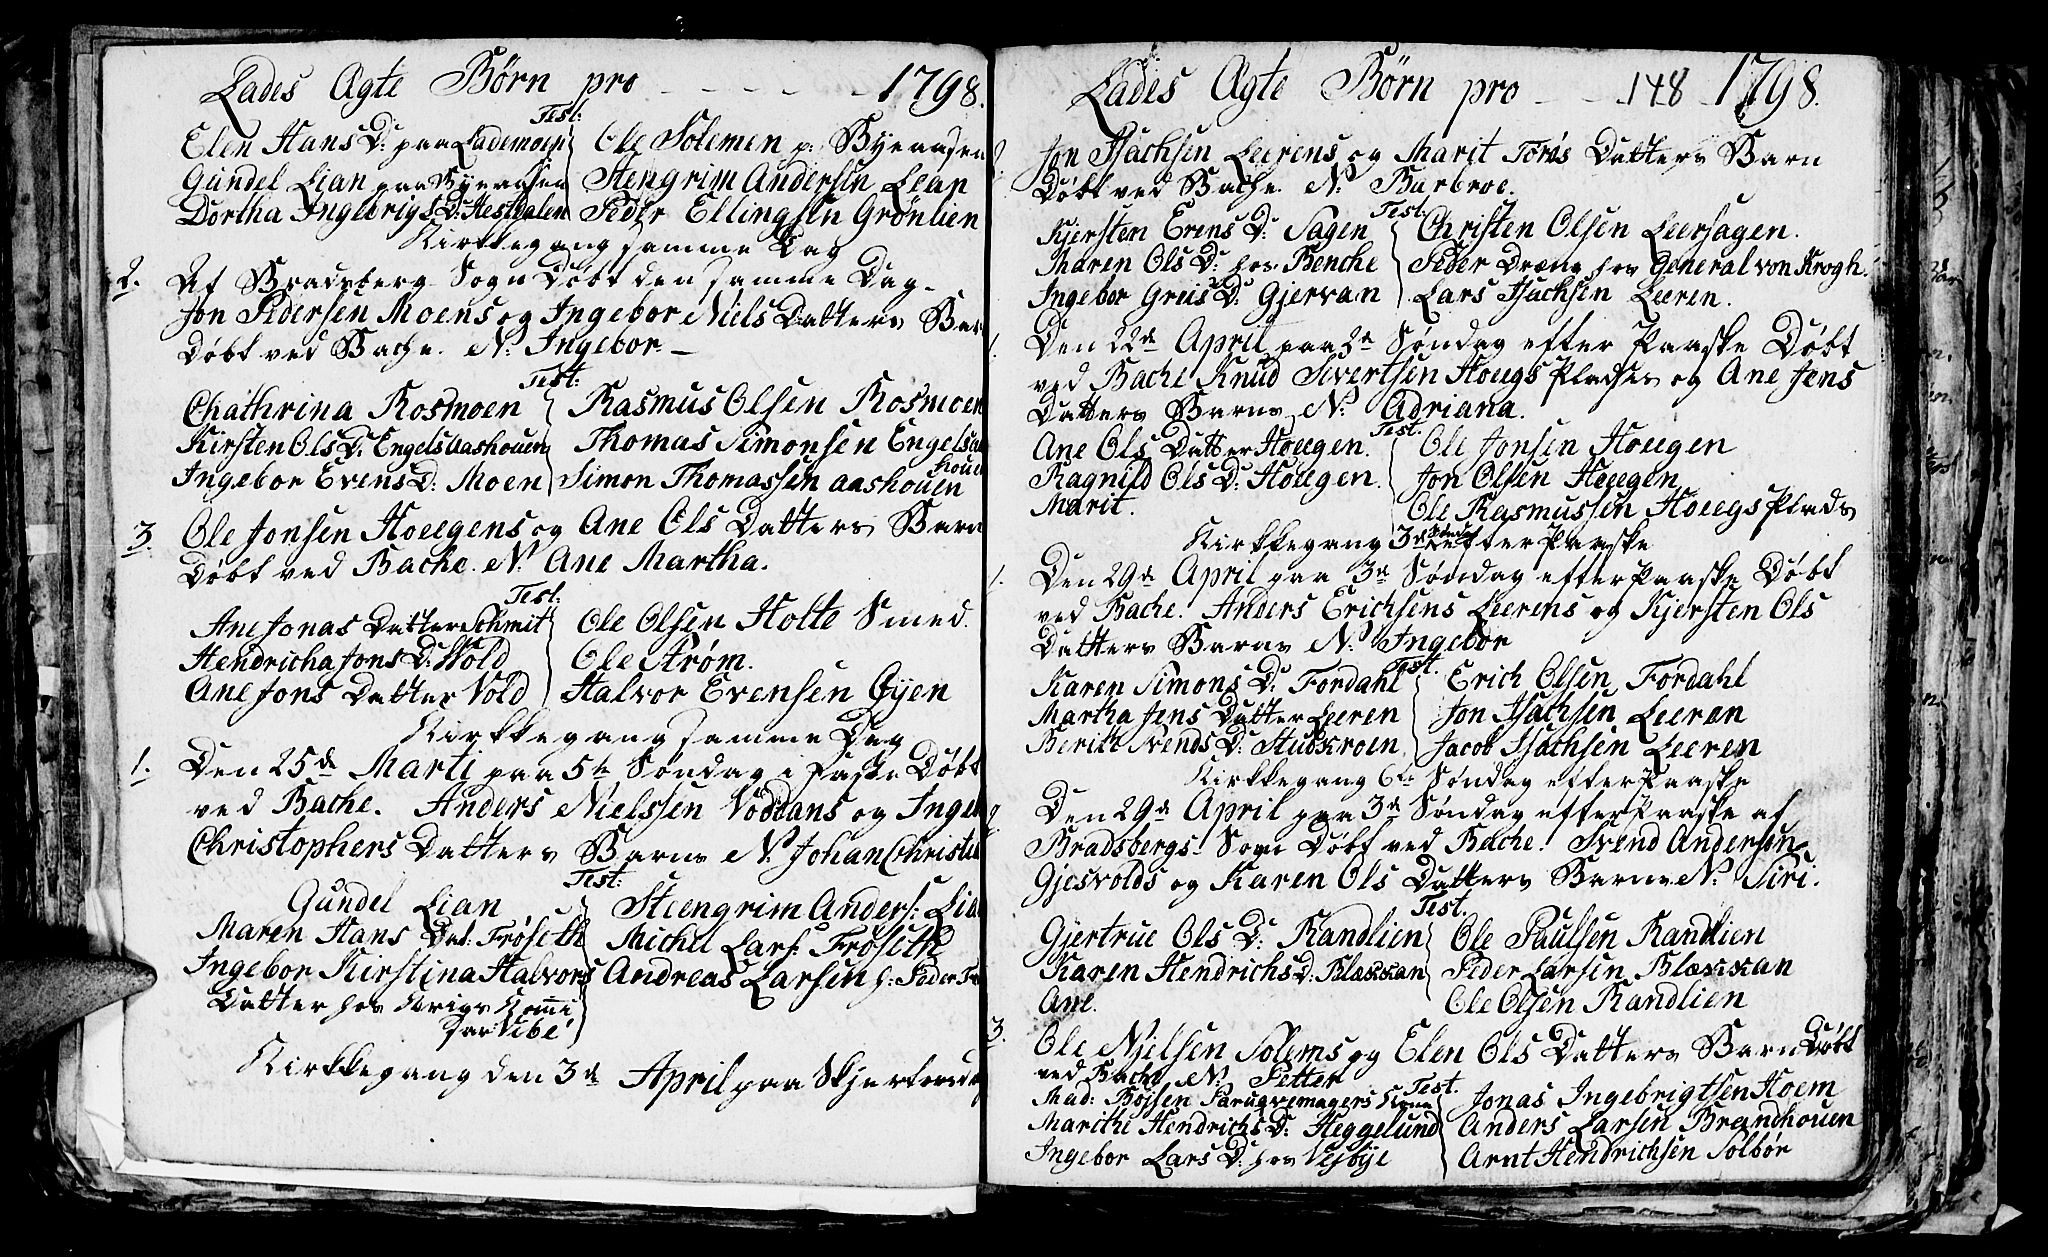 Lades Ægte Børn pro - - - - - - 1798.
Test:
Elen Hans D: paa Lademoen Ole Solemen p: Byeaasen
Gundel Lian paa Byeaasen Stengrim Andersen Lean
Dortha Ingebrigts D: Hestdalen Peder Ellingsen Grønlien
Kirkkegang samme Dag
2. Af Bradsberg Sogn Døbt den samme Dag
Jon Pedersen Moens og Ingebor Niels Datters Bar
Døbt ved Bache. N: Ingebor. -
Test:
Chathrina Rosmoen Rasmus Olsen Rosmoen
Kirsten Ols D: Engelsaashouen Thomas Simonsen Engelsaas
houen
Ingebor Evens D: Moen Simon Thomassen aashouen
3. Ole Jonsen Hoeegens og Ane Ols Datters Barn
Døbt ved Bache. N: Ane Martha.
Test:
Ane Jonas Datter Schmit Ole Olsen Holte Smed.
Hendricha Jons D: Vold Ole Strøm.
Ane Jons Datter Vold Halvor Evensen Øyen
Kirkkegang samme Dag
1. Den 25de Marti paa 5te Søndag i Faste Døbt
ved Bache. Anders Nielssen Voddans og Inge
Christophers Datters Barn N: Johan Christi
Test:
Gundel Lian Steengrim Anders: Lia
Maren Hans Dat: Frøseth Michel Lars: Frøseth
Ingebor Kirstina Halvors Andreas Larsen h: Peder
Datter hos Krigs Kommi
sar Vibe
Kirkkegang den 3de April paa Skjertorsdag
Lades Ægte Børn pro - - 148 - 1798.
2. Jon Isachsen Leerens og Marit Tores Datters Barn
Døbt ved Bache. N: Barbroe.
Test:
Kjersten Erens D: Sagen Christen Olsen Leersagen.
Maren Ols D: hos Benche Peder Dreng hos General von Krogh.
Ingebor Greis D: Gjervan Lars Isachsen Leeren.
1. Den 22de April paa 2de Søndag efter Paaske Døbt
ved Bache Knud Sivertsen Hoegs Pladsen og Ane Jens
Datters Barn N: Adriana.
Test.
Ane Ols Datter Hoeegen. Ole Jonsen Hoeegen
Ragnild Ols D: Hoeegen. Jon Olsen Hoeegen
Marit. Ole Rasmussen Hoeegs Plads
Kirkkegang 3de Søndag efter Paaske
1. Den 29de April paa 3de Søndag efter Paaske Døbt
ved Bache. Anders Erichsens Leerens og Kjersten Ols
Datters Barn N: Ingebor
Test.
Karen Simons D: Fordahl Erich Olsen Fordahl
Martha Jens Datter Leeren Jon Isachsen Leeren
Berith Svends D: Stubskroen Jacob Isachsen Leeren
Kirkkegang 6te Søndag efter Paaske
2. Den 29de April paa 3de Søndag efter Paaske af
Bradsbergs Sogn Døbt ved Bache. Svend Andersen
Gjesvolds og Karen Ols Datters Barn N: Siri.
Test.
Gjertrue Ols D: Randlien Ole Paulsen Randlien
Karen Hendrichs D: Blækkan Peder Larsen Blækkan
Ane. Ole Olsen Randlien
3. Ole Nielsen Solems og Elen Ols Datters Barn Døbt
ved Bache N: Petter
Test.
Mad: Bøjsen Paruqvemagers Kone Jonas Ingebrigtsen Hoem
Marithe Hendrichs D: Heggelund Anders Larsen Brandhouen
Ingebor Lars D: hos Vejbye Arnt Hendrichsen Solbør